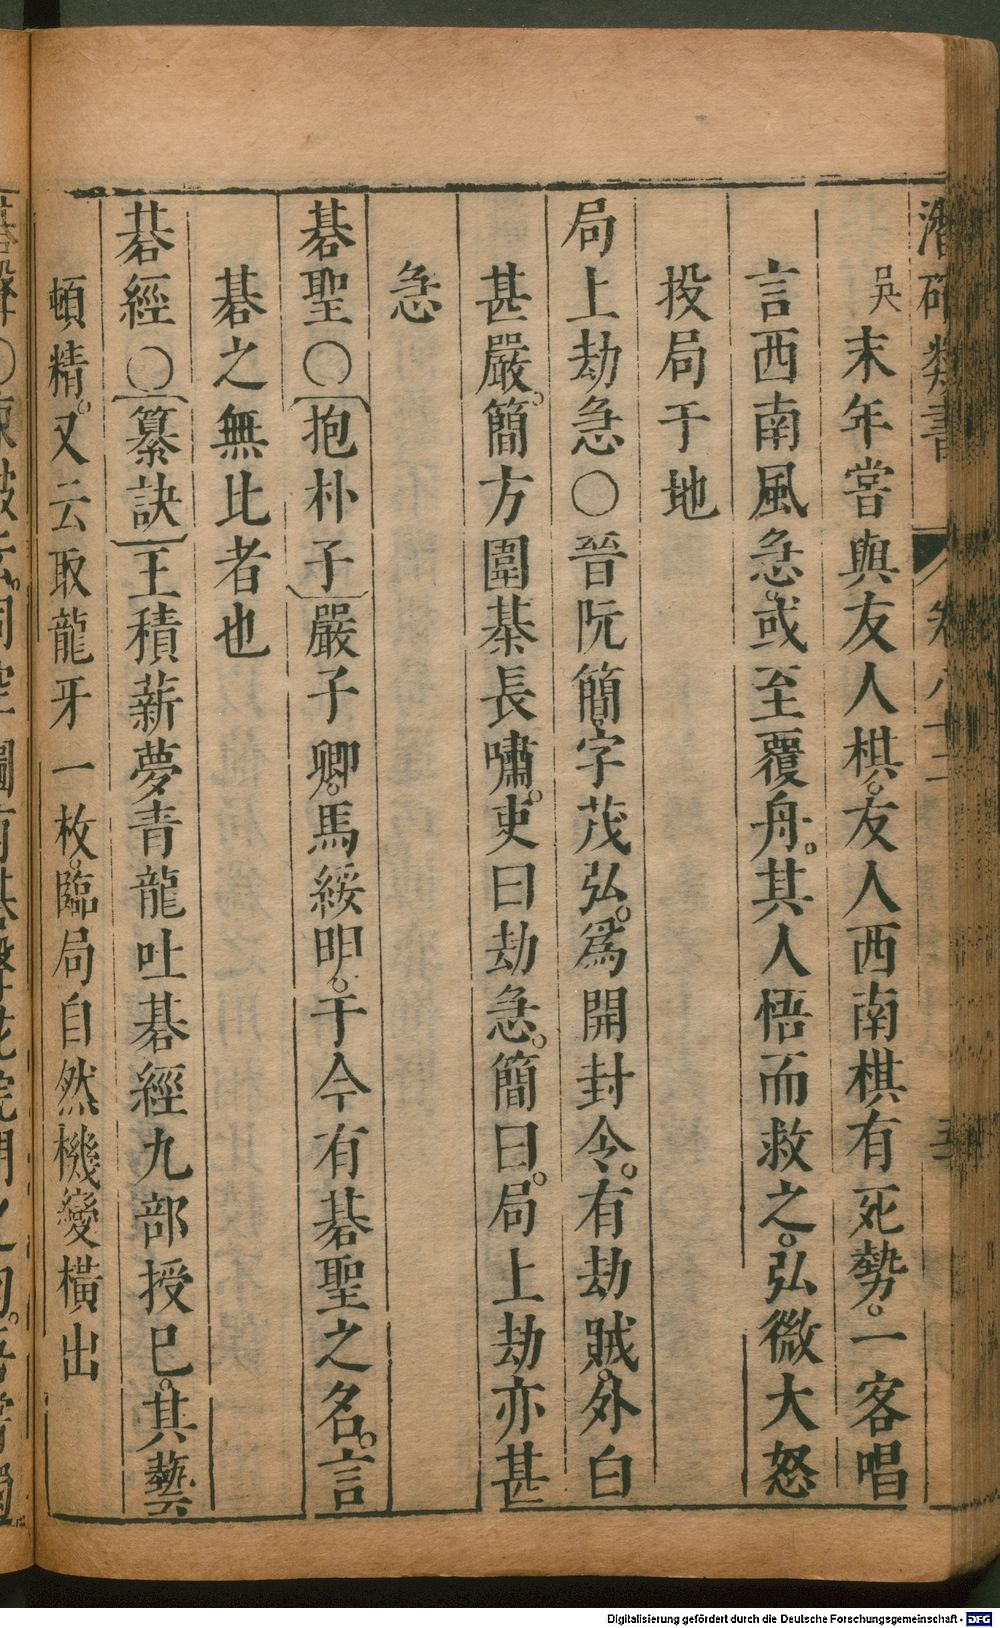 潛確類書 卷八十二 五
吳末年嘗與友人棋。友人西南棋有死勢。一客唱
言西南風急。或至覆舟。其人悟而救之。弘微大怒
投局于地
局上劫急○晉阮簡字茂弘。為開封令。有劫賊。外白
甚嚴。簡方圍棊長嘯。吏曰劫急。簡曰。局上劫亦甚
急
碁聖○抱朴子嚴子卿。馬綏明。于今有碁聖之名。言
碁之無比者也
碁經○纂訣王積薪夢青龍吐碁經九部授已。其藝
頓精。又云取龍牙一枚。臨局自然機變橫出
Digitalisierung gefördert durch die Deutsche Forschungsgemeinschaft - DFG